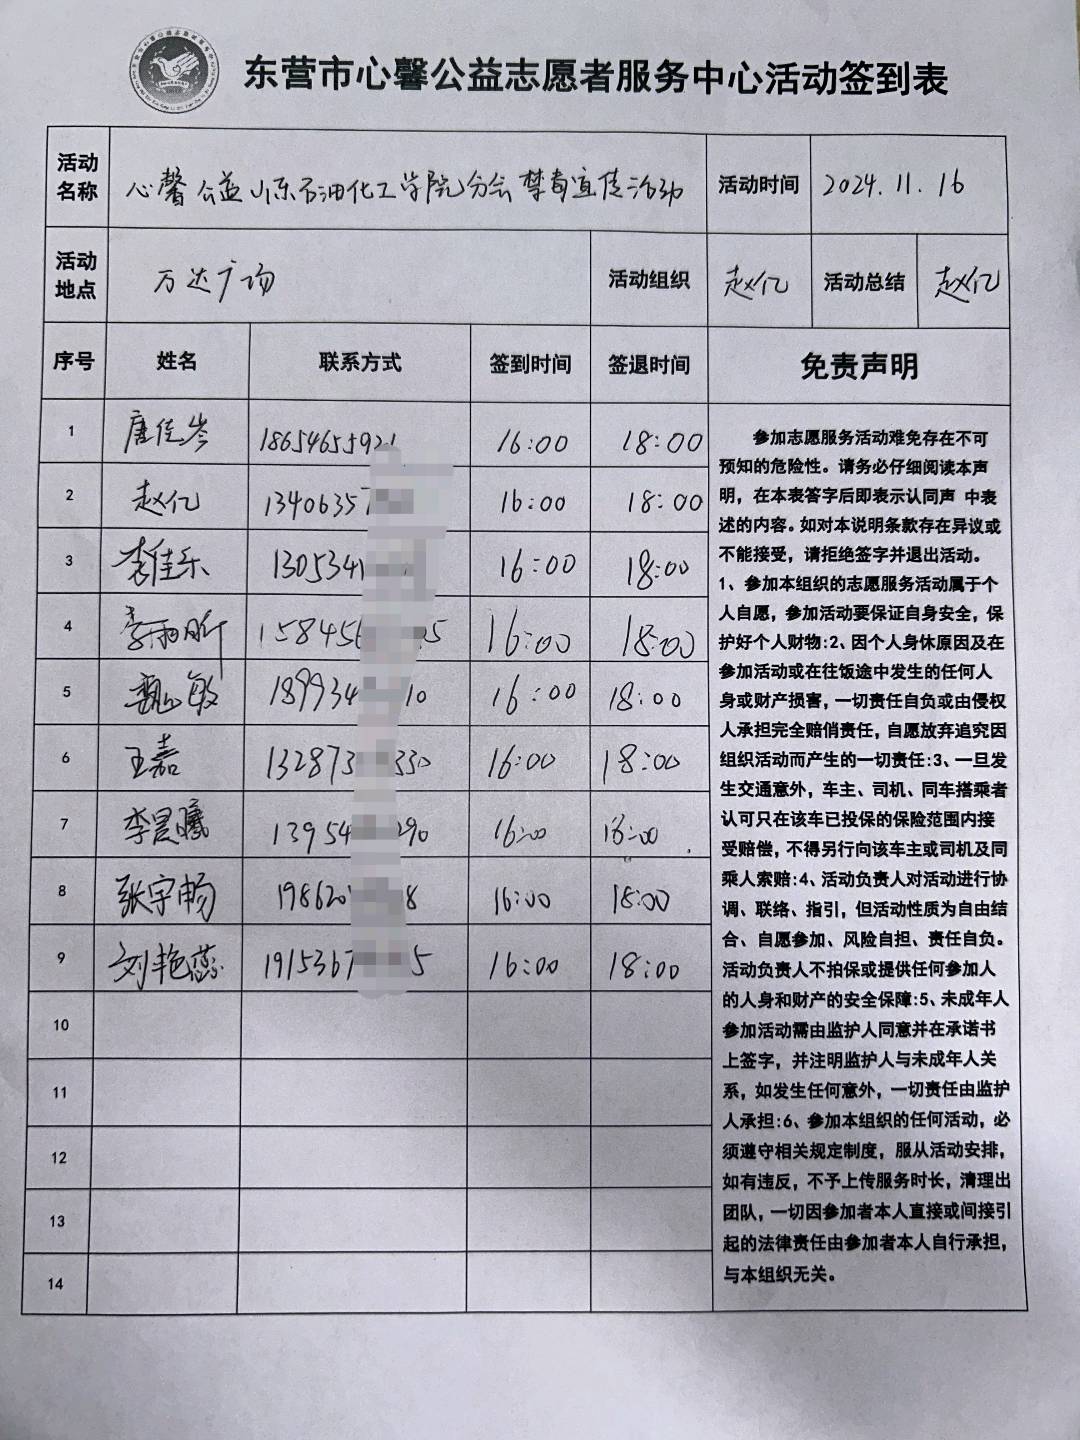 东营市心馨公益志愿者服务中心活动签到表
活动名称 心馨公益山东石油化工学院分会禁毒宣传活动 活动时间 2024.11.16
活动地点 万达广场 活动组织 赵亿 活动总结 赵亿
序号 姓名 联系方式 签到时间 签退时间 免责声明
1 唐佳岑 18654655921 16:00 18:00
2 赵亿 13406357 16:00 18:00
3 李佳乐 1305341 16:00 18:00
4 李雨昕 158456 5 16:00 18:00
5 魏敏 189934 10 16:00 18:00
6 王嘉 132873 330 16:00 18:00
7 李昱曦 13954 290 16:00 18:00
8 张宇畅 198620 8 16:00 18:00
9 刘艳蕊 1915367 5 16:00 18:00
10
11
12
13
14
参加志愿服务活动难免存在不可
预知的危险性。请务必仔细阅读本声
明，在本表答字后即表示认同声 中表
述的内容。如对本说明条款存在异议或
不能接受，请拒绝签字并退出活动。
1、参加本组织的志愿服务活动属于个
人自愿，参加活动要保证自身安全，保
护好个人财物:2、因个人身休原因及在
参加活动或在往饭途中发生的任何人
身或财产损害，一切责任自负或由侵权
人承担完全赔俏责任，自愿放弃追究因
组织活动而产生的一切责任:3、一旦发
生交通意外，车主、司机、同车搭乘者
认可只在该车已投保的保险范围内接
受赔偿，不得另行向该车主或司机及同
乘人索赔:4、活动负责人对活动进行协
调、联络、指引，但活动性质为自由结
合、自愿参加、风险自担、责任自负。
活动负责人不拍保或提供任何参加人
的人身和财产的安全保障:5、未成年人
参加活动需由监护人同意并在承诺书
上签字，并注明监护人与未成年人关
系，如发生任何意外，一切责任由监护
人承担:6、参加本组织的任何活动，必
须遵守相关规定制度，服从活动安排，
如有违反，不予上传服务时长，清理出
团队，一切因参加者本人直接或间接引
起的法律责任由参加者本人自行承担，
与本组织无关。